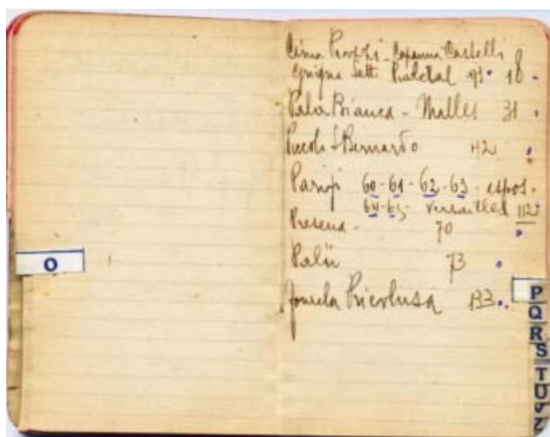 Cima Piazzi - Capanna Castelli 8
Grigna Sett Pialeral 93 18
Pala Bianca - Malles 31
Piccolo S Bernardo 42
Parigi 60-61-62-63- espos.
64-65- Versailles 112
Presena - 70
Palü 73
133
O
P
Q
R
S
T
U
Z